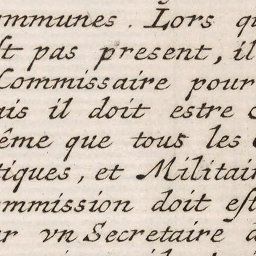 ommunes. Lors qu
st pas present, il
Commissaire pour
ais il doit estre c
ême que tous les
tiques, et Militair
ommission doit est
ar vn Secretaire d